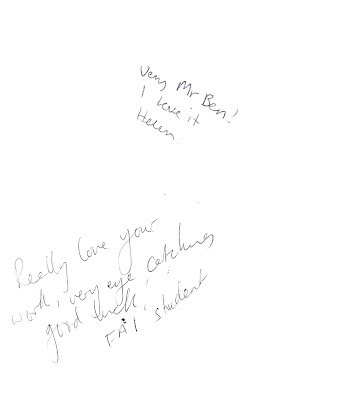 Very Mr Ben!
I love it
Helen
Really love your
work, very eye catching
good luck!
FA1 student